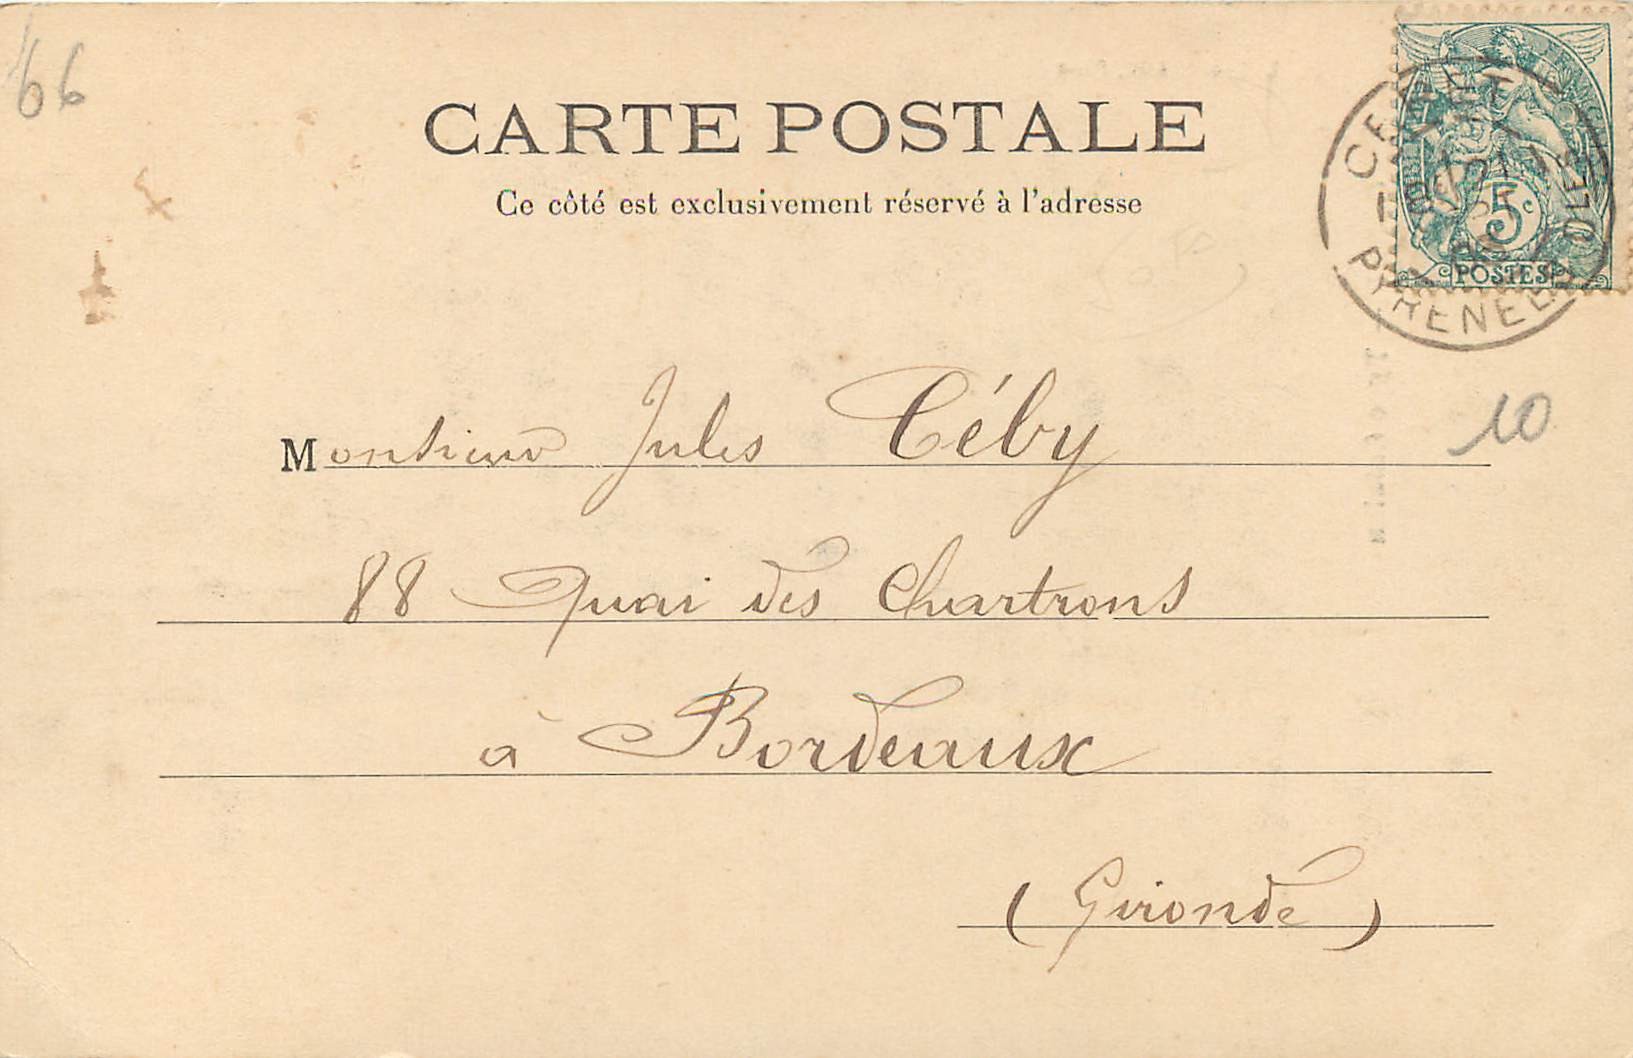 66
CARTE POSTALE
Ce côté est exclusivement réservé à l'adresse
5 c
POSTES
10
Monsieur Jules Céby
88 Quai des Chartrons
à Bordeaux
(Gironde)